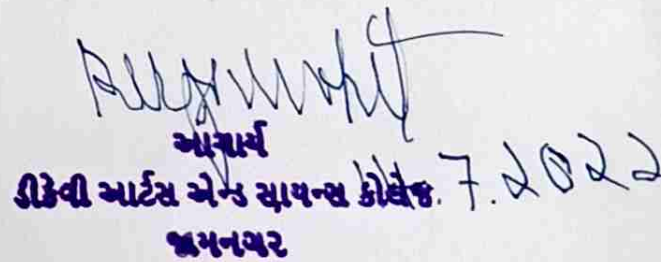 આચાર્ય
ડીકેવી આર્ટસ એન્ડ સાયન્સ કોલેજ. 7.2022
જામનગર